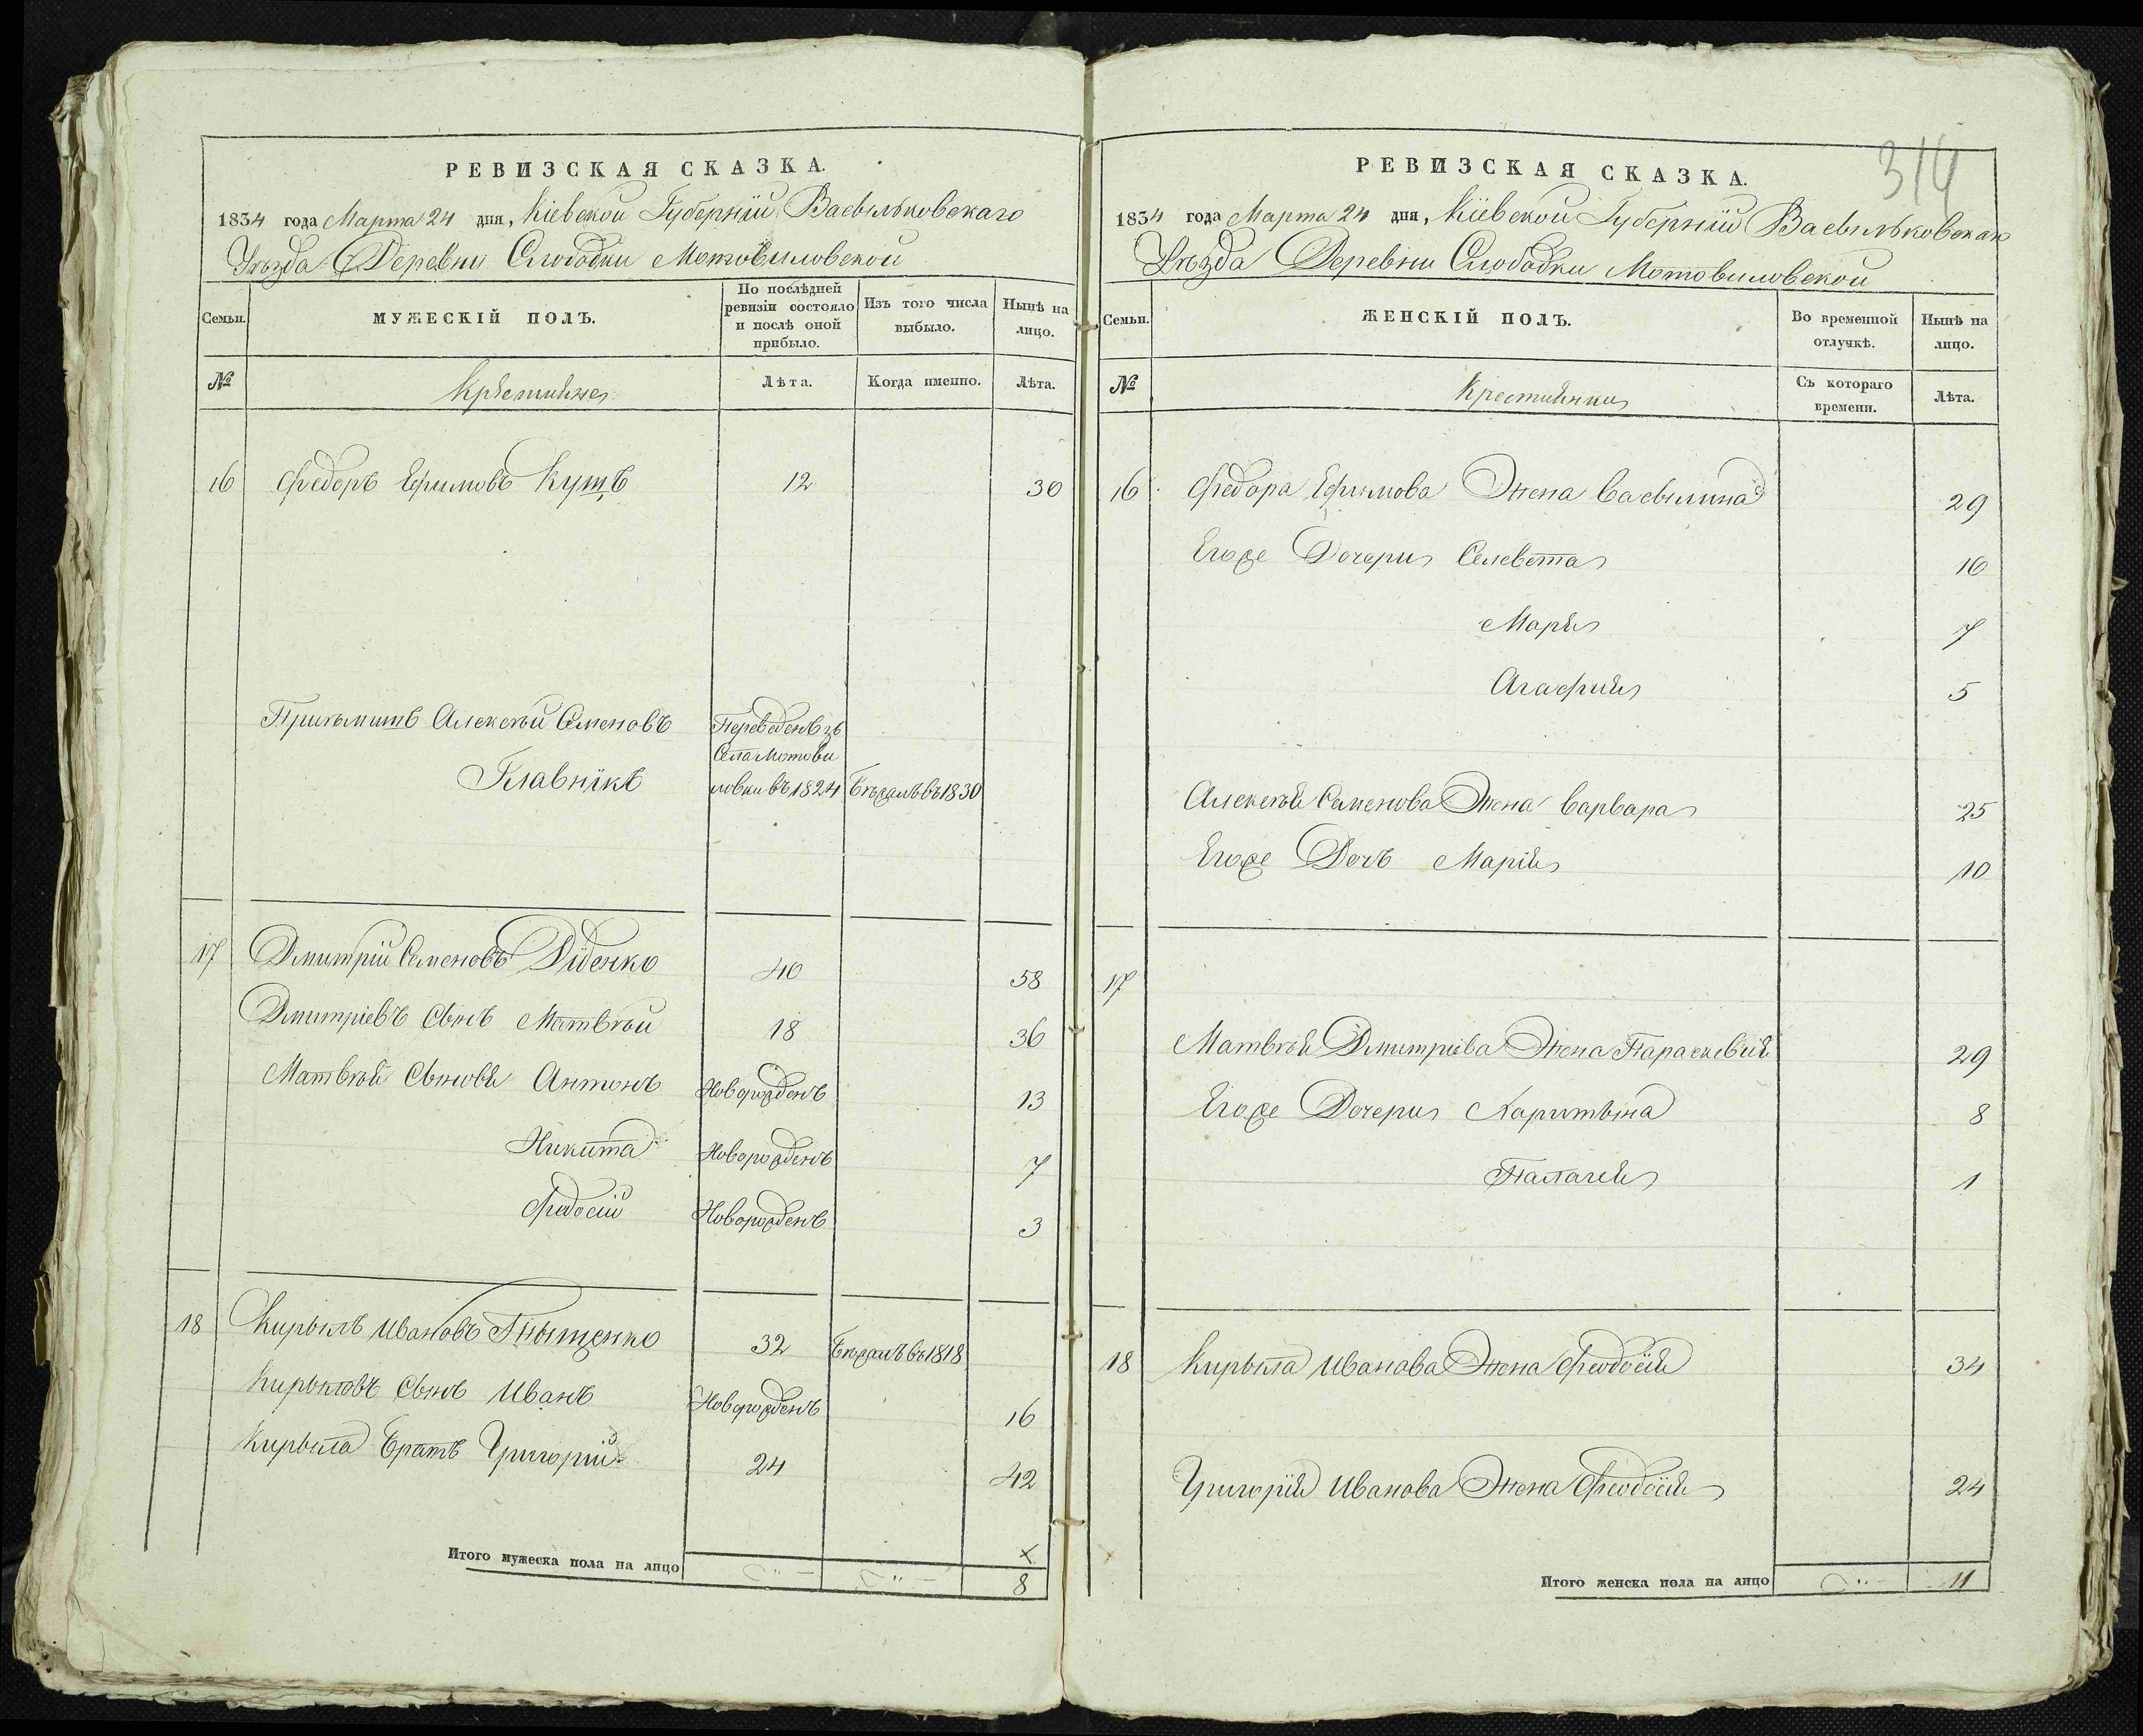 РЕВИЗСКАЯ СКАЗКА.
1834 года Марта 24 дня, Кіевской Губерніи Васильковскаго
Уѣзда Деревни Слободки Мотовиловской
Семьи.
МУЖЕСКІЙ ПОЛЪ.
По послѣдней ревизіи состояло и послѣ оной прибыло.
Изъ того числа выбыло.
Нынѣ на лицо.
№
Крестьяне
Лѣта.
Когда именно.
Лѣта.
16 Федоръ Ефимовъ Кущъ 12 30
Пріимытъ Алексѣй Семеновъ Переведенъ зъ
Села Мотови
Главнікъ ловки въ 1824 Бѣжалъ въ 1830
17 Дмитрій Семеновъ Діденко 40 58
Дмитріевъ Сынъ Матвѣй 18 36
Матвѣя Сыновя Антонъ Новорожденъ 13
Никита Новорожденъ 7
Федосій Новорожденъ 3
18 Кирылъ Ивановъ 32 Бѣжалъ въ 1818
Кирыловъ Сынъ Иванъ Новорожденъ 16
Кирыла Братъ Григорій 24 42
х
Итого мужеска пола на лицо 8
314
РЕВИЗСКАЯ СКАЗКА.
1834 года Марта 24 дня, Кіевской Губерніи Васильковскаго
Уѣзда Деревни Слободки Мотовиловской
Семьи.
ЖЕНСКІЙ ПОЛЪ.
Во временной отлучкѣ.
Нынѣ на лицо.
№
Крестянки
Съ котораго времени.
Лѣта.
16 Федора Ефимова Жена Васылина 29
Егоже Дочери Селевета 16
Маря 7
Агафия 5
Алексѣя Семенова Жена Варвара 25
Егоже Дочъ Марія 10
17
Матвѣя Дмитріева Жена Параскевія 29
Егоже Дочери Харитына 8
Палагея 1
18 Кирыла Иванова Жена Феодосія 34
Григорія Иванова Жена Феодосія 24
Итого женска пола на лицо 11